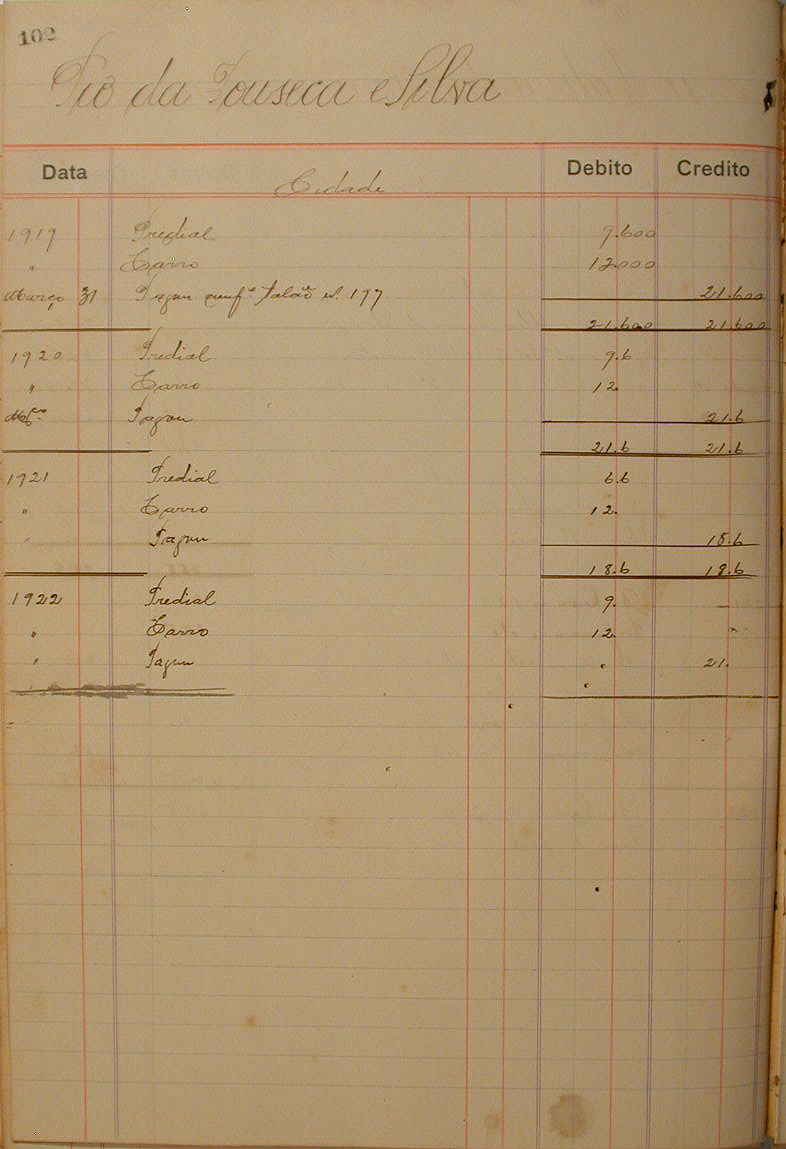 102
Pio da Fonseca e Silva
Data Cidade Debito Credito
1919 Predial 9.600
" Carro 12.000
Março 31 Pagou conf.e talão n. 177 21.600
21.600 21.600
1920 Predial 9.6
" Carro 12.
Mço Pagou 21.6
21.6 21.6
1921 Predial 6.6
" Carro 12.
" Pagou 18.6
18.6 18.6
1922 Predial 9.
" Carro 12.
" Pagou 21.